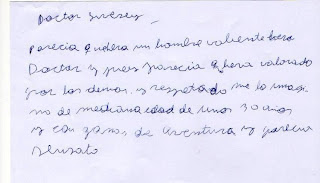 Doctor
Parecia q hera un hombre valiente
Doctor y pues parecia q hera valorado
por los demas y respetado me lo imagi
no de mediana edad de unos 30 años
y con ganas de aventura y parecia
sensato